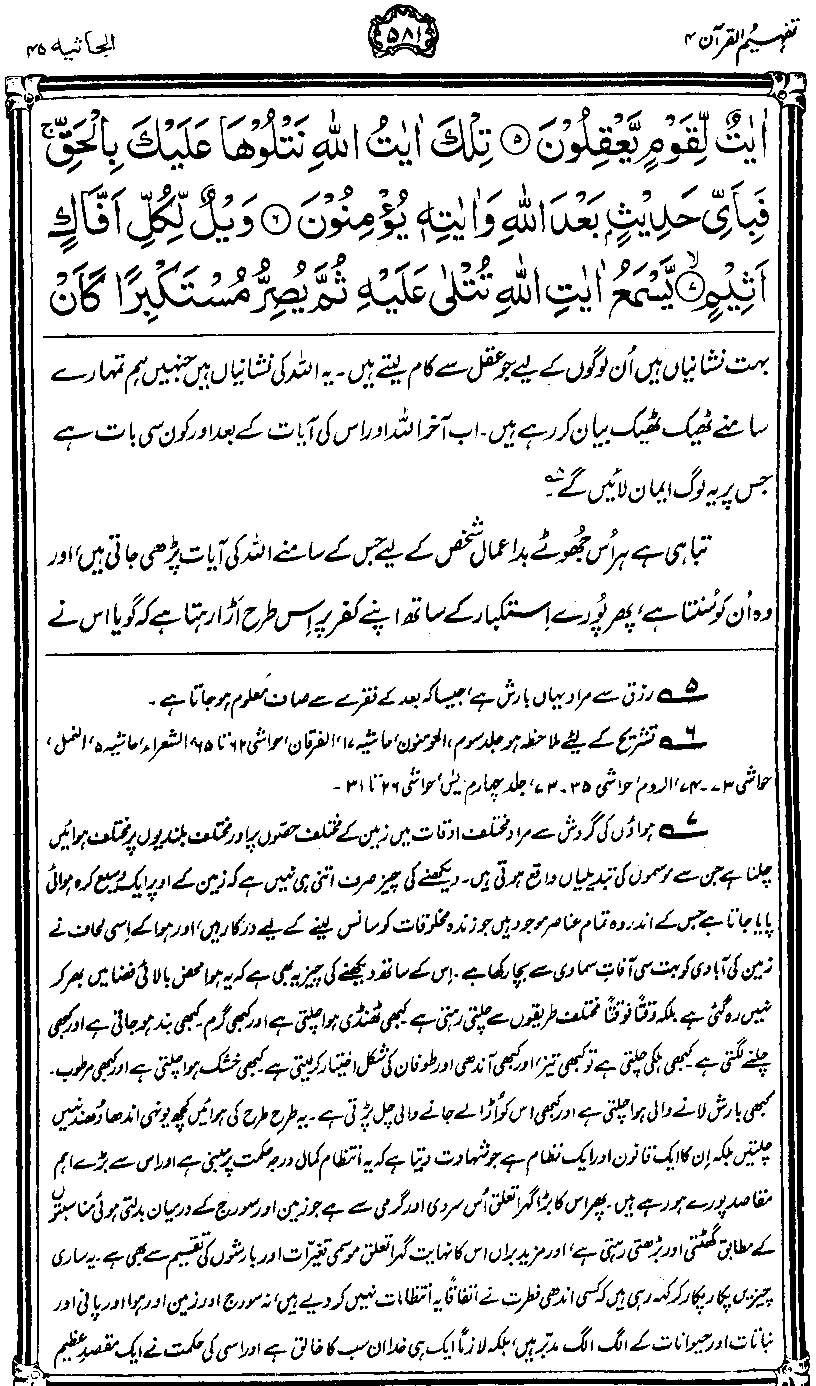 تفہیم القرآن ۴
۵۸۱
الجاثیہ ۴۵
اٰيٰتٌ لِّقَوْمٍ يَّعْقِلُوْنَ ۝۵ تِلْكَ اٰيٰتُ اللّٰهِ نَتْلُوْهَا عَلَيْكَ بِالْحَقِّ ۚ
فَبِاَيِّ حَدِيْثٍۭ بَعْدَ اللّٰهِ وَاٰيٰتِهٖ يُؤْمِنُوْنَ ۝۶ وَيْلٌ لِّكُلِّ اَفَّاكٍ
اَثِيْمٍ ۝۷ۙ يَّسْمَعُ اٰيٰتِ اللّٰهِ تُتْلٰى عَلَيْهِ ثُمَّ يُصِرُّ مُسْتَكْبِرًا كَاَنْ
بہت نشانیاں ہیں اُن لوگوں کے لیے جو عقل سے کام لیتے ہیں۔ یہ اللہ کی نشانیاں ہیں جنہیں ہم تمہارے
سامنے ٹھیک ٹھیک بیان کر رہے ہیں۔ اب آخر اللہ اور اس کی آیات کے بعد اور کون سی بات ہے
جس پر یہ لوگ ایمان لائیں گے۔
تباہی ہے ہر اُس جھوٹے بداعمال شخص کے لیے جس کے سامنے اللہ کی آیات پڑھی جاتی ہیں، اور
وہ اُن کو سُنتا ہے، پھر پُورے اِستکبار کے ساتھ اپنے کفر پر اِس طرح اَڑا رہتا ہے کہ گویا اس نے
۵ رزق سے مراد یہاں بارش ہے، جیسا کہ بعد کے فقرے سے صاف معلوم ہو جاتا ہے۔
۶ تشریح کے لیے ملاحظہ ہو جلد سوم، المومنون، حاشیہ ۱۷، الفرقان، حواشی ۶۲ تا ۶۵، الشعراء، حاشیہ ۵، النمل،
حواشی ۷۳-۷۴، الروم، حواشی ۳۵-۷۳، جلد چہارم یٰس، حواشی ۲۶ تا ۳۱۔
۷ ہواؤں کی گردش سے مراد مختلف اوقات میں زمین کے مختلف حصّوں پر اور مختلف بلندیوں پر مختلف ہوائیں
چلنا ہے جن سے موسموں کی تبدیلیاں واقع ہوتی ہیں۔ دیکھنے کی چیز صرف اتنی ہی نہیں ہے کہ زمین کے اوپر ایک وسیع کرہ ہوائی
پایا جاتا ہے جس کے اندر وہ تمام عناصر موجود ہیں جو زندہ مخلوقات کو سانس لینے کے لیے درکار ہیں، اور ہوا کے اِسی لحاف نے
زمین کی آبادی کو بہت سی آفاتِ سماوی سے بچا رکھا ہے۔ اِس کے ساتھ دیکھنے کی چیز یہ بھی ہے کہ یہ ہوا محض بالائی فضا میں بھر کر
نہیں رہ گئی ہے بلکہ وقتاً فوقتاً مختلف طریقوں سے چلتی رہتی ہے کبھی ٹھنڈی ہوا چلتی ہے اور کبھی گرم۔ کبھی بند ہو جاتی ہے اور کبھی
چلنے لگتی ہے۔ کبھی ہلکی چلتی ہے تو کبھی تیز، اور کبھی آندھی اور طوفان کی شکل اختیار کر لیتی ہے کبھی خشک ہوا چلتی ہے اور کبھی مرطوب۔
کبھی بارش لانے والی ہوا چلتی ہے اور کبھی اس کو اُڑا لے جانے والی چل پڑتی ہے۔ یہ طرح طرح کی ہوائیں کچھ یونہی اندھا دُھند نہیں
چلتیں بلکہ اِن کا ایک قانون اور ایک نظام ہے جو شہادت دیتا ہے کہ یہ انتظام کمال درجہ حکمت پر مبنی ہے اور اس سے بڑے اہم
مقاصد پورے ہو رہے ہیں۔ پھر اس کا بڑا گہرا تعلق اُس سردی اور گرمی سے ہے جو زمین اور سورج کے درمیان بدلتی ہوئی مناسبتوں
کے مطابق گھٹتی اور بڑھتی رہتی ہے، اور مزید براں اس کا نہایت گہرا تعلق موسمی تغیرات اور بارشوں کی تقسیم سے بھی ہے۔ یہ ساری
چیزیں پکار پکار کر کہہ رہی ہیں کہ کسی اندھی فطرت نے اتفاقًا یہ انتظامات نہیں کر دیے ہیں، نہ سورج اور زمین اور ہوا اور پانی اور
نباتات اور حیوانات کے الگ الگ مدبّر ہیں، بلکہ لازماً ایک ہی خدا ان سب کا خالق ہے اور اسی کی حکمت نے ایک مقصدِ عظیم